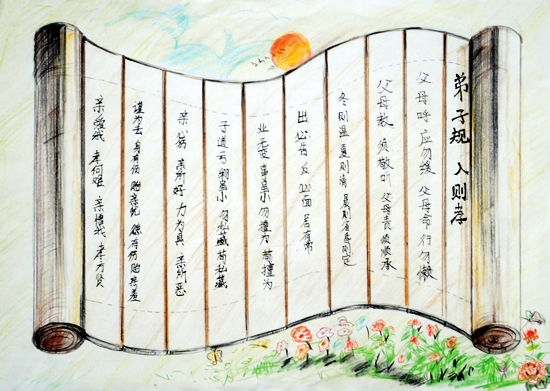 弟子规 入则孝
父母呼 应勿缓 父母命 行勿懒
父母教 须敬听 父母责 须顺承
冬则温 夏则清 晨则省 昏则定
出必告 反必面 居有常
业无变 事虽小 勿擅为 苟擅为
子道亏 物虽小 勿私藏 苟私藏
亲心伤 亲所好 力为具 亲所恶
谨为去 身有伤 贻亲忧 德有伤 贻亲羞
亲爱我 孝何难 亲憎我 孝方贤